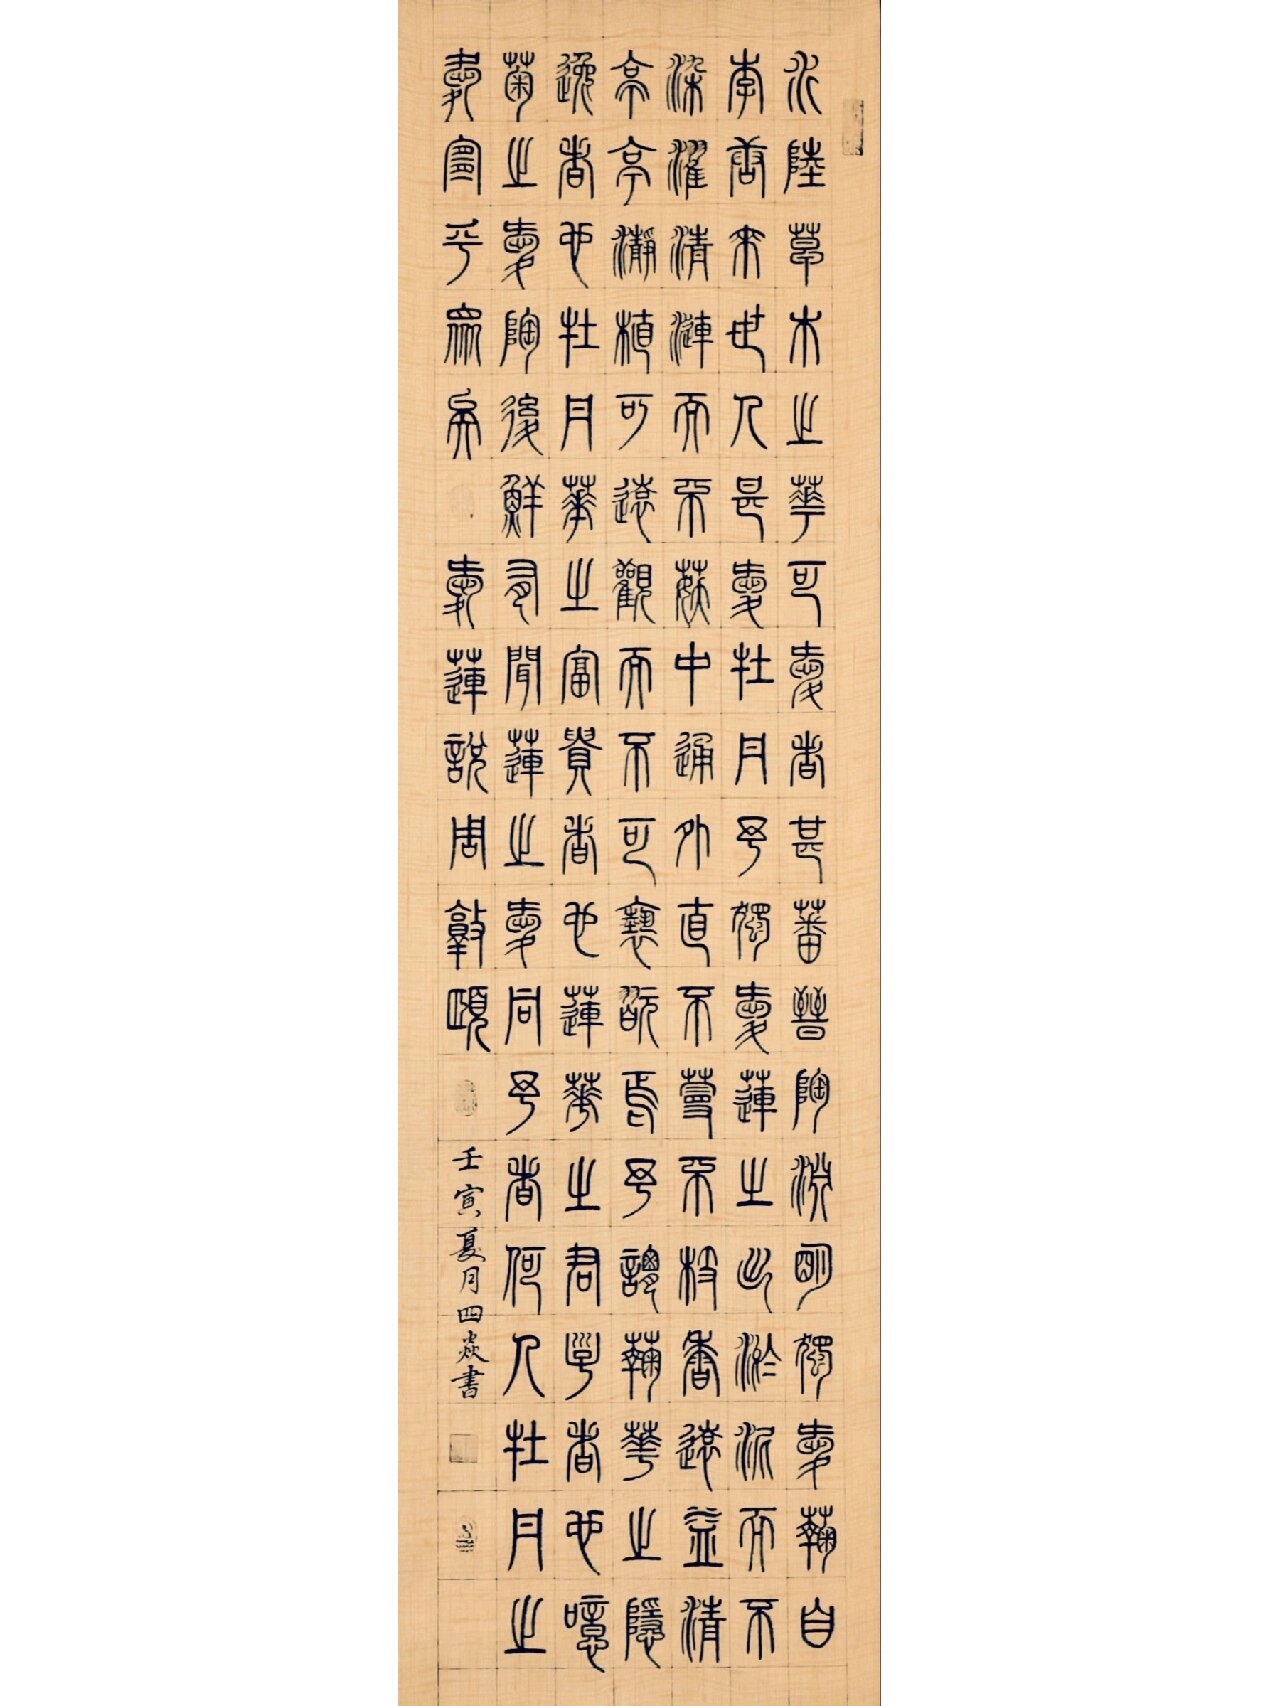 水陸草木之華可愛者甚蕃晉陶淵明獨愛菊自
李唐來世人甚愛牡丹予獨愛蓮之出淤泥而不
染濯清漣而不妖中通外直不蔓不枝香遠益清
亭亭瀞植可遠觀而不可褻翫焉予謂菊華之隱
逸者也牡丹華之富貴者也蓮華之君子者也噫
菊之愛陶後鮮有聞蓮之愛同予者何人牡丹之
愛宜乎眾矣 愛蓮說周敦頤 壬寅夏月四焱書